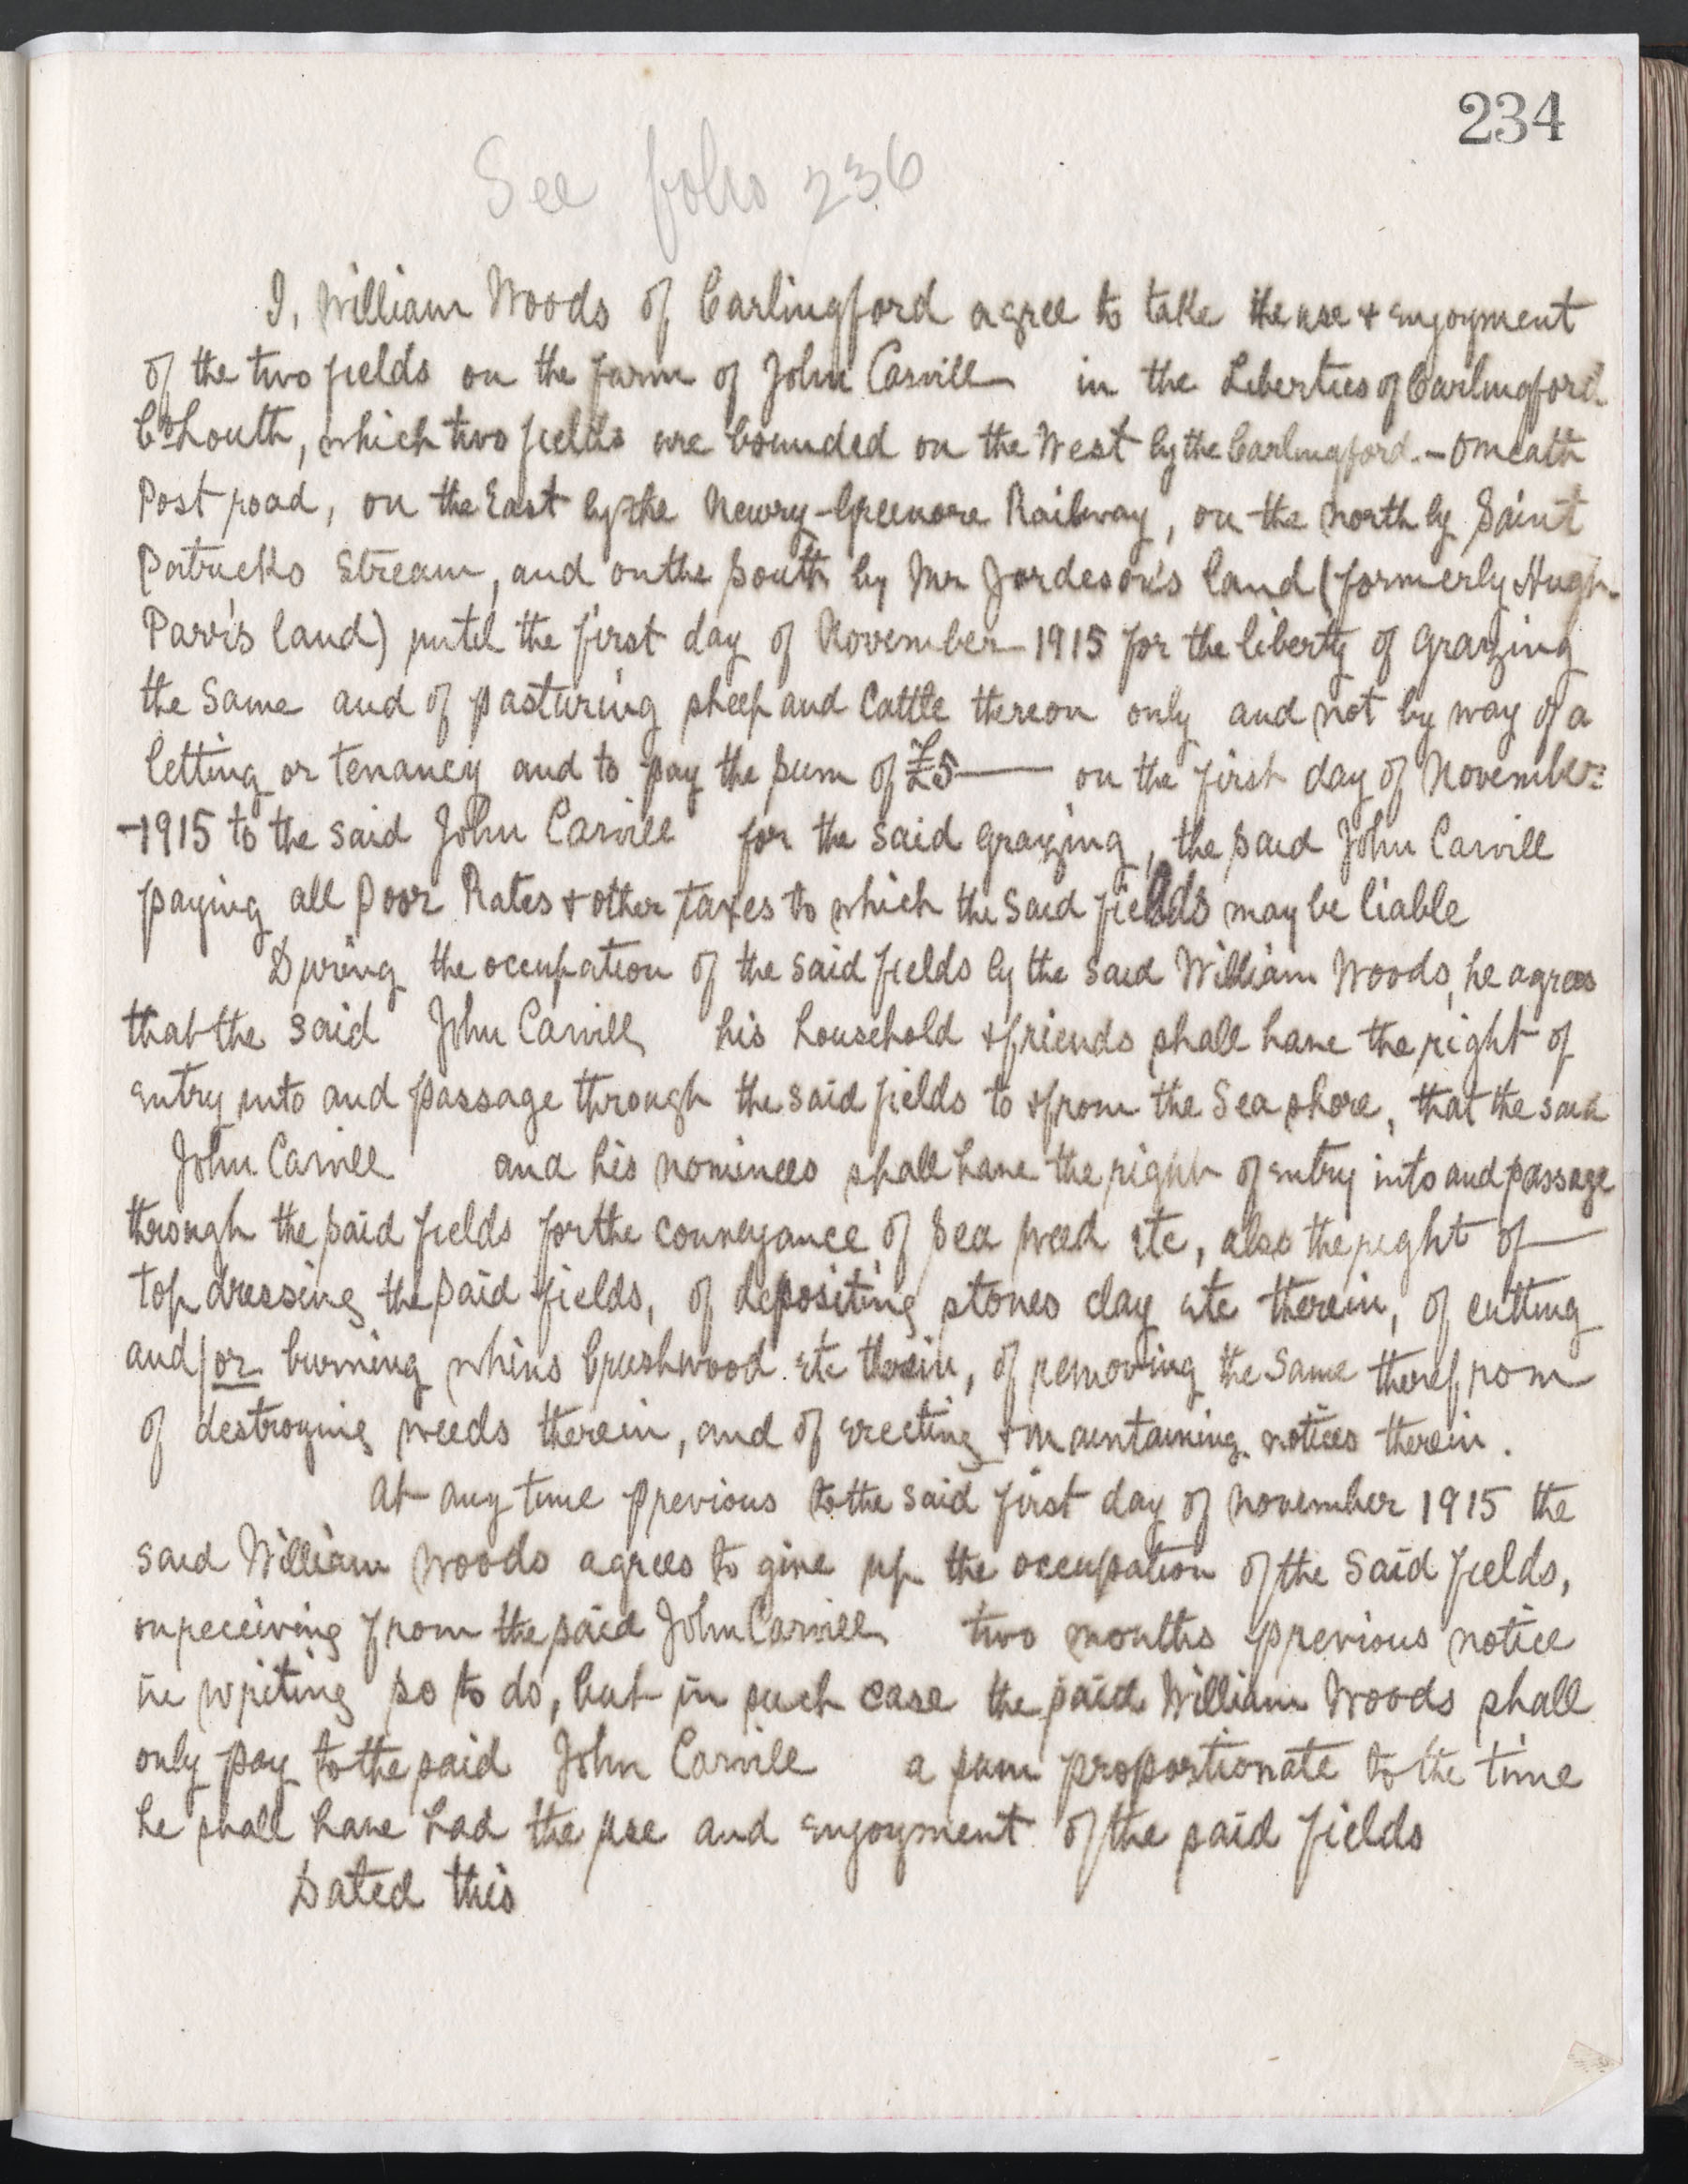 234
See folio 236
I, William Woods of Carlingford agree to take the use & enjoyment
of the two fields on the farm of John Carvill in the Liberties of Carlingford
Co Louth, which two fields are bounded on the West by the Carlingford - Omeath
Post road, on the East by the Newry-Greenore Railway, on the north by Saint
Patricks Stream, and on the south by Mr Jordeson's land (formerly Hugh
Parr's land) until the first day of November 1915 for the liberty of grazing
the same and of pasturing sheep and cattle thereon only and not by way of a
letting or tenancy and to pay the sum of £5 — on the first day of November
-1915 to the said John Carvill for the said grazing, the said John Carvill
paying all Poor Rates & other taxes to which the said fields may be liable
During the occupation of the said fields by the said William Woods, he agrees
that the said John Carvill his household & friends shall have the right of
entry into and passage through the said fields to & from the Sea shore, that the said
John Carvill and his nominees shall have the right of entry into and passage
through the said fields for the conveyance of sea weed etc, also the right of —
top dressing the said fields, of depositing stones clay etc therein, of cutting
and/or burning whins brushwood etc therein, of removing the same therefrom
of destroying weeds therein, and of erecting & maintaining notices therein.
At any time previous to the said first day of November 1915 the
said William Woods agrees to give up the occupation of the said fields,
on receiving from the said John Carvill two months previous notice
in writing so to do, but in such case the said William Woods shall
only pay to the said John Carvill a sum proportionate to the time
he shall have had the use and enjoyment of the said fields
Dated this